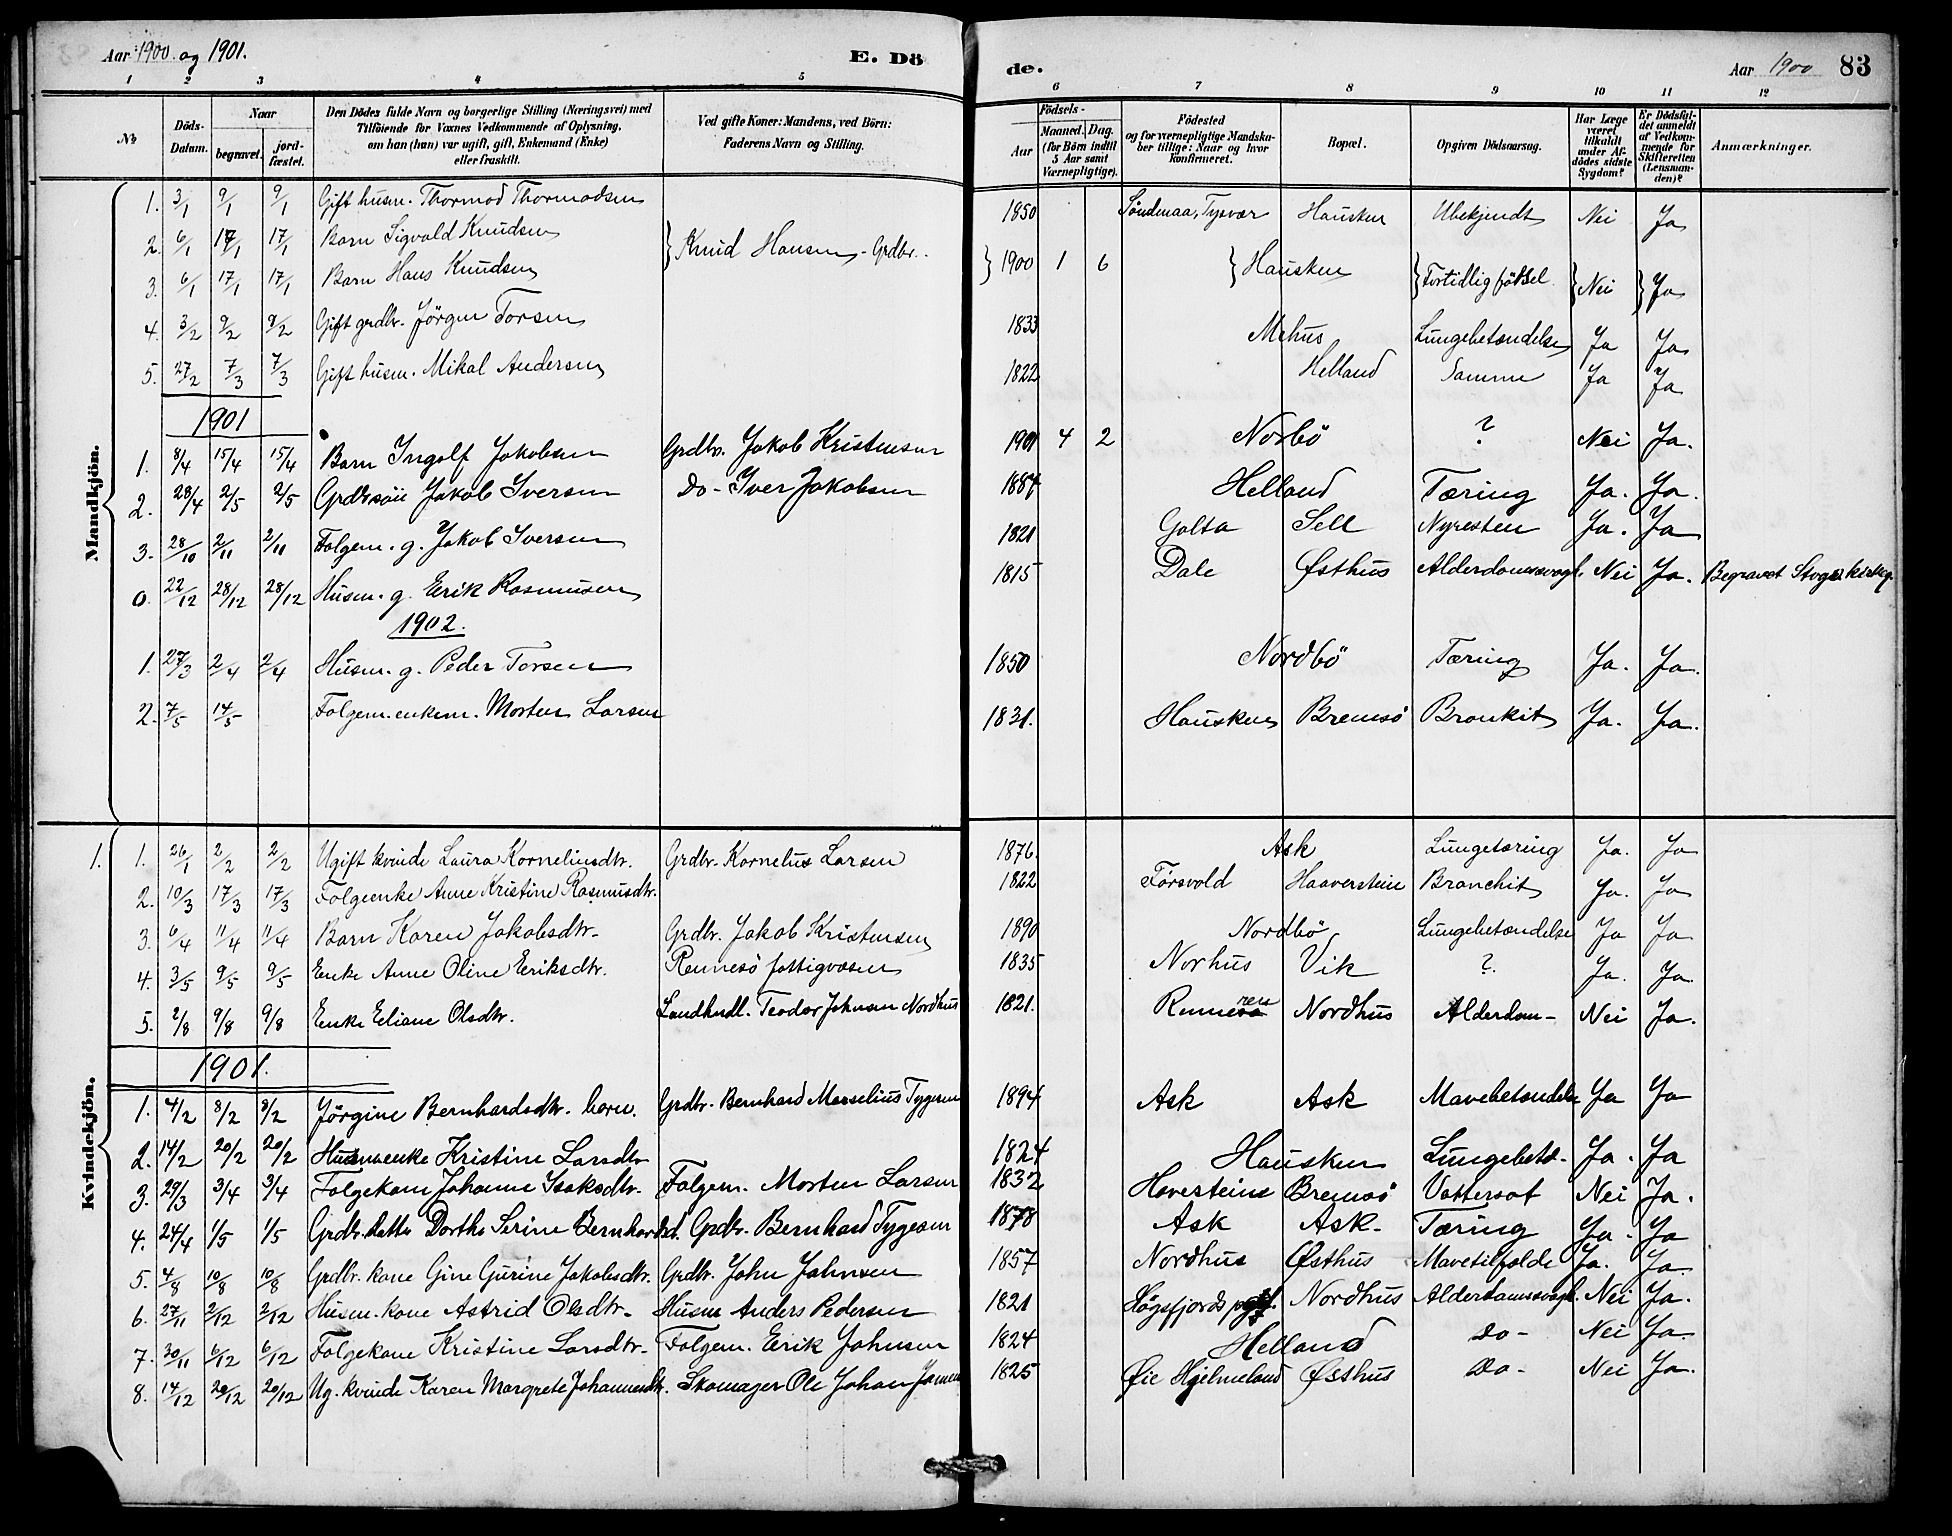 Aar 1900 og 1901. E. Dö
de. Aar 1900 83
1 2 3 4 5 6 7 8 9 10 11 12
No. Döds-Datum. Naar begravet. jordfæstet. Den Dödes fulde Navn og borgerlige Stilling (Næringsvei) med Tilföiende for Voxnes Vedkommende af Oplysning, om han (hun) var ugift, gift, Enkemand (Enke) eller fraskilt. Ved gifte Koner: Mandens, ved Börn: Faderens Navn og Stilling. Födsels- Aar Maaned. Dag. (for Börn indtil 5 Aar samt Værnepligtige). Födested og for værnepligtige Mandskaber tillige: Naar og hvor konfirmeret. Bopæl. Opgiven Dödsaarsag. Har Læge været tilkaldt under Afdödes sidste Sygdom? Er Dödsfaldet anmeldt af Vedkommende for Skifteretten (Lensmanden)? Anmærkninger.
Mandkjön.
1. 3/1 9/1 9/1 Gift husm. Thormod Thormodsen 1850 Söndenaa, Tysvær Hausken Ubekjendt Nei Ja
2. 6/1 17/1 17/1 Barn Sigvald Knudsen } Knud Hansen - Grdbr. } 1900 1 6 } Hausken } Fortidlig födsel } Nei } Ja
3. 6/1 17/1 17/1 Barn Hans Knudsen
4. 3/2 9/2 9/2 Gift grdbr. Jörgen Torsen 1833 Mehus Lungebetændelse Ja Ja
5. 27/2 7/3 7/3 Gift husm. Mikal Andersen 1822 Helland Samme Ja Ja
1901
1. 8/4 15/4 15/4 Barn Ingolf Jakobsen Grdbr. Jakob Kristensen 1901 4 2 Norbö ? Nei Ja.
2. 28/4 2/5 2/5 Grdbrsön Jakob Iversen Do - Iver Jakobsen 1887 Helland Tæring Ja. Ja.
3. 28/10 2/11 2/11 Folgem. g. Jakob Iversen 1821 Galta Sell Nyresten Ja. Ja
0. 22/12 28/12 28/12 Husm. g. Erik Rasmusen 1815 Dale Østhus Alderdomssvagh. Nei Ja. Begravet
1902.
1. 27/3 2/4 2/4 Husm. g. Peder Torsen 1850 Nordbö Tæring Ja. Ja.
2. 7/5 14/5 Folgem. enkem. Morten Larsen 1831. Hausken Bremsö Bronkit Ja. Ja.
Kvindekjön.
1. 1. 26/1 2/2 2/2 Ugift kvinde Laura Korneliusdtr. Grdbr. Kornelius Larsen 1876. Ask Lungetæring Ja. Ja
2. 10/3 17/3 17/3 Folgeenke Anne Kristine Rasmusdtr. 1822 Försvold Haaverstein Bronchit Ja. Ja
3. 6/4 11/4 11/4 Barn Karen Jakobsdtr. Grdbr. Jakob Kristensen 1890 Nordbö Lungebetændelse Ja Ja
4. 3/5 9/5 9/5 Enke Anne Oline Eeriksdtr. Rennesö fattigvæsen 1835 Norhus Vik ? Ja. Ja
5. 2/8 9/8 9/8 Enke Eliane Olsdtr. Landhndl. Teodor Johnsen Nordhus 1821. Rennesö Nordhus Alderdom - Nei Ja.
1901.
1. 4/2 8/2 8/2 Jörgine Bernhardsdtr. barn. Grdbr. Bernhard Marselius Tygesen 1894 Ask Ask Mavebetændelse Ja Ja
2. 14/2 20/2 20/2 Husmenke Kristine Larsdtr 1824 Hausken Lungebetd. Ja. Ja
3. 29/3 3/4 3/4 Folgekone Johanne Isaksdtr. Folgem. Morten Larsen 1832 Haversteine Bremsö Vattersot Nei Ja.
4. 24/4 1/5 1/5 Grdbr. datter Dorthe Serine Bernhardsd. Grdbr. Bernhard Tygesen 1878 Ask Ask. Tæring Ja. Ja
5. 4/8 10/8 10/8 Grdbr. kone Gine Gurine Jakobsdtr. Grdbr. John Johnsen 1857 Nordhus Østhus Mavetilfælde Ja. Ja.
6. 27/11 2/12 2/12 Husm. kone Astrid Olsdtr. Husm Anders Pedersen 1821 Høgsfjords Nordhus Alderdomssvagh. Nei Ja.
7. 30/11 6/12 6/12 Folgekone Kristine Larsdtr. Folgem. Erik Johnsen 1824 Helland Do - Nei Ja.
8. 14/12 20/12 20/12 Ug. kvinde Karen Margrete Johannesdtr. Skomager Ole Johan 1825 Øie Hjelmeland Østhus Do - Nei Ja.